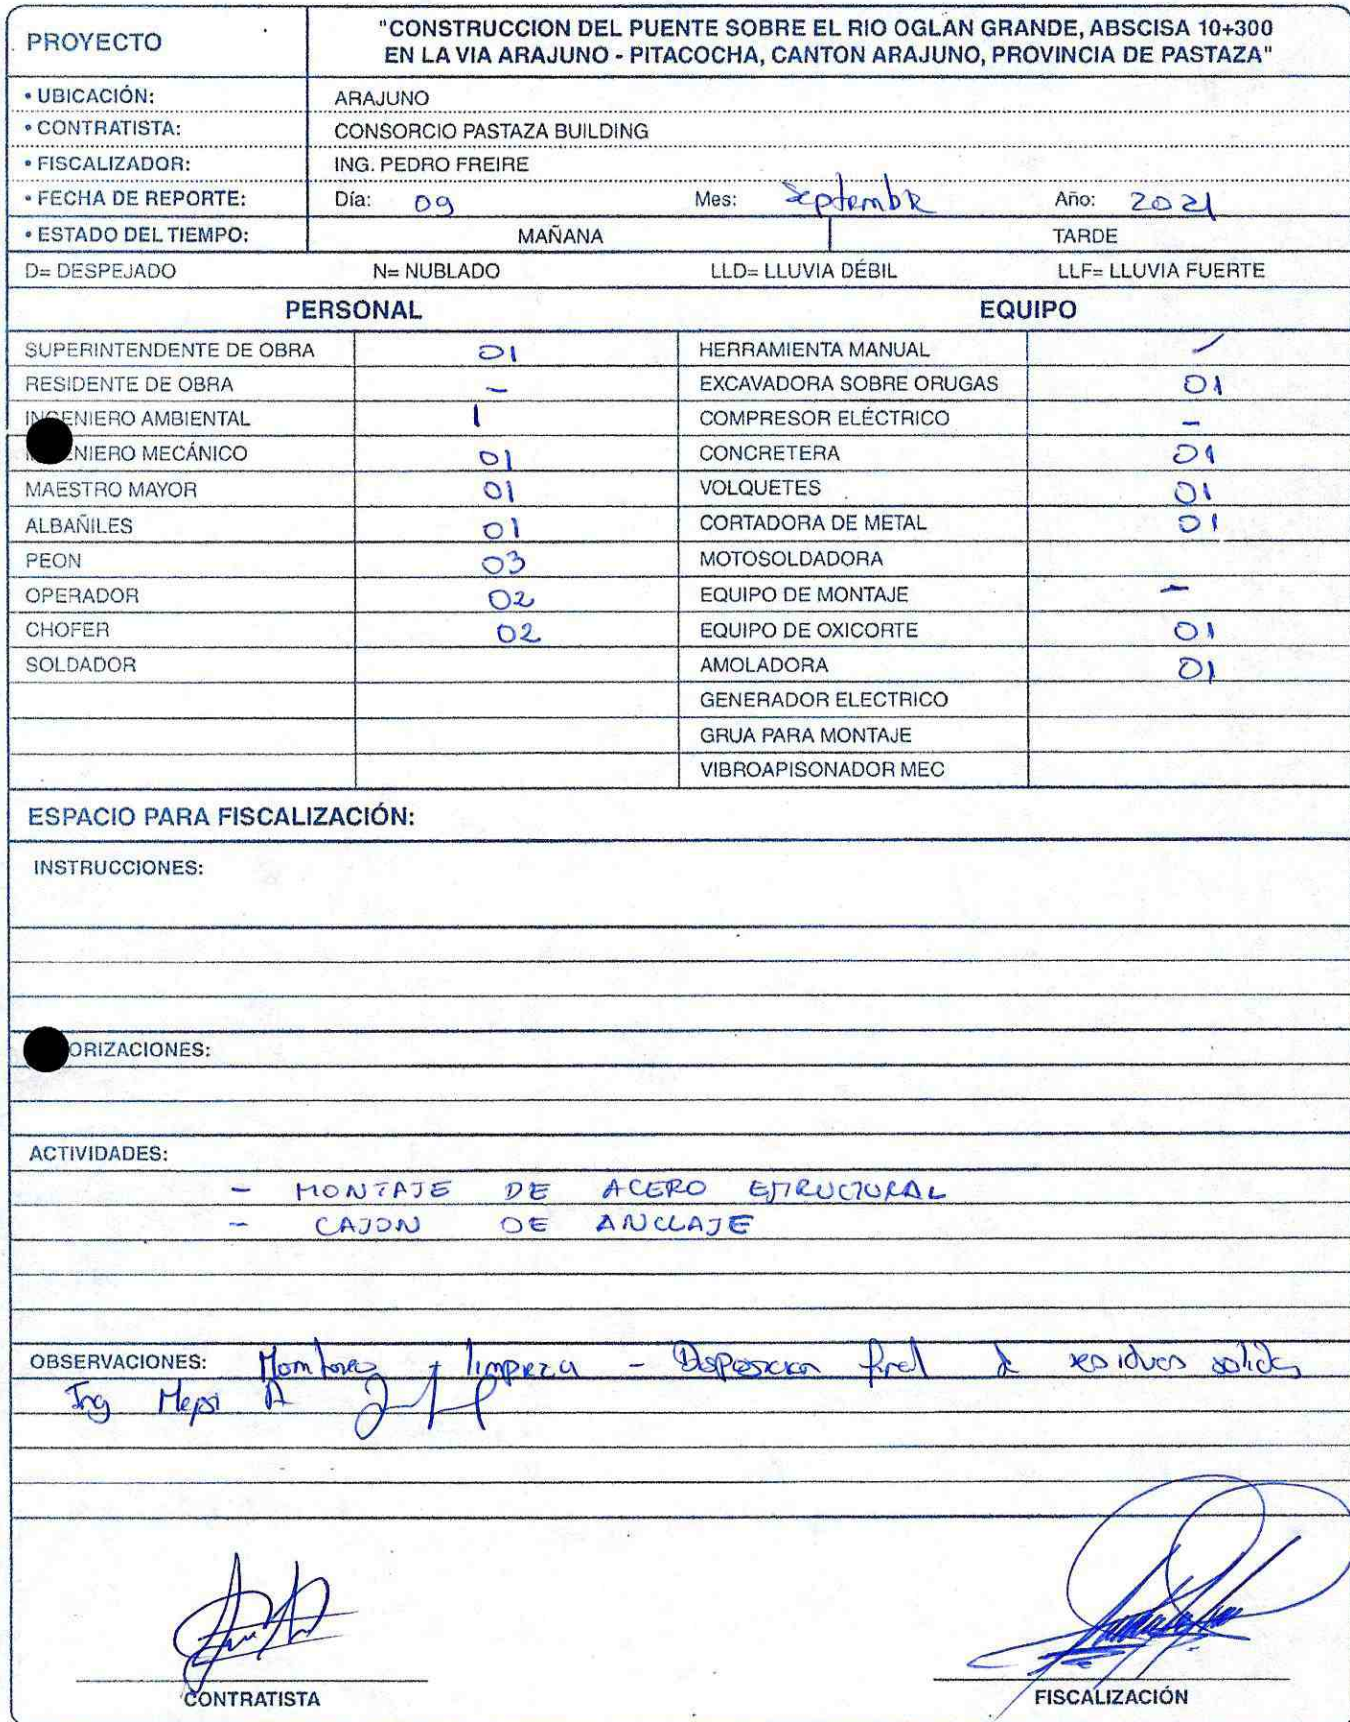 PROYECTO
"CONSTRUCCION DEL PUENTE SOBRE EL RIO OGLAN GRANDE, ABSCISA 10+300
EN LA VIA ARAJUNO - PITACOCHA, CANTON ARAJUNO, PROVINCIA DE PASTAZA"
• UBICACIÓN: ARAJUNO
• CONTRATISTA: CONSORCIO PASTAZA BUILDING
• FISCALIZADOR: ING. PEDRO FREIRE
• FECHA DE REPORTE: Día: 09 Mes: Septembre Año: 2021
• ESTADO DEL TIEMPO: MAÑANA TARDE
D= DESPEJADO N= NUBLADO LLD= LLUVIA DÉBIL LLF= LLUVIA FUERTE
PERSONAL EQUIPO
SUPERINTENDENTE DE OBRA 01 HERRAMIENTA MANUAL ✓
RESIDENTE DE OBRA - EXCAVADORA SOBRE ORUGAS 01
INGENIERO AMBIENTAL 1 COMPRESOR ELÉCTRICO -
NIERO MECÁNICO 01 CONCRETERA 01
MAESTRO MAYOR 01 VOLQUETES 01
ALBAÑILES 01 CORTADORA DE METAL 01
PEON 03 MOTOSOLDADORA
OPERADOR 02 EQUIPO DE MONTAJE -
CHOFER 02 EQUIPO DE OXICORTE 01
SOLDADOR AMOLADORA 01
GENERADOR ELECTRICO
GRUA PARA MONTAJE
VIBROAPISONADOR MEC
ESPACIO PARA FISCALIZACIÓN:
INSTRUCCIONES:
ORIZACIONES:
ACTIVIDADES:
- MONTAJE DE ACERO ESTRUCTURAL
- CAJON DE ANCLAJE
OBSERVACIONES: limpieza - Disposicion final de residuos solidos
Ing
CONTRATISTA
FISCALIZACIÓN